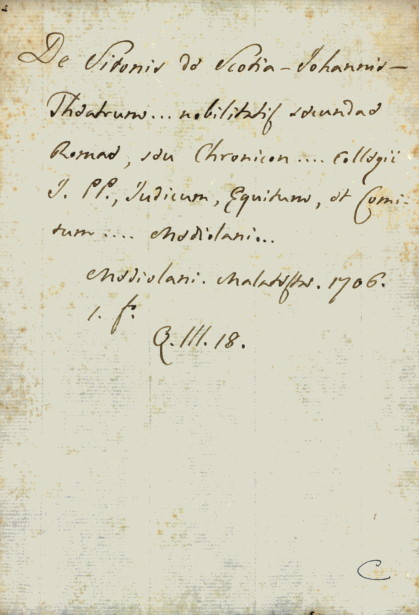 De Sitonis de Scotia - Johannis -
Theatrum... nobilitatis secundae
Romae, seu Chronicon .... Collegii
J. PP., Judicum, Equitum, et Comi-
tum .... Mediolani...
Mediolani. Malatesta. 1706.
1. f.
Q. III. 18.
C